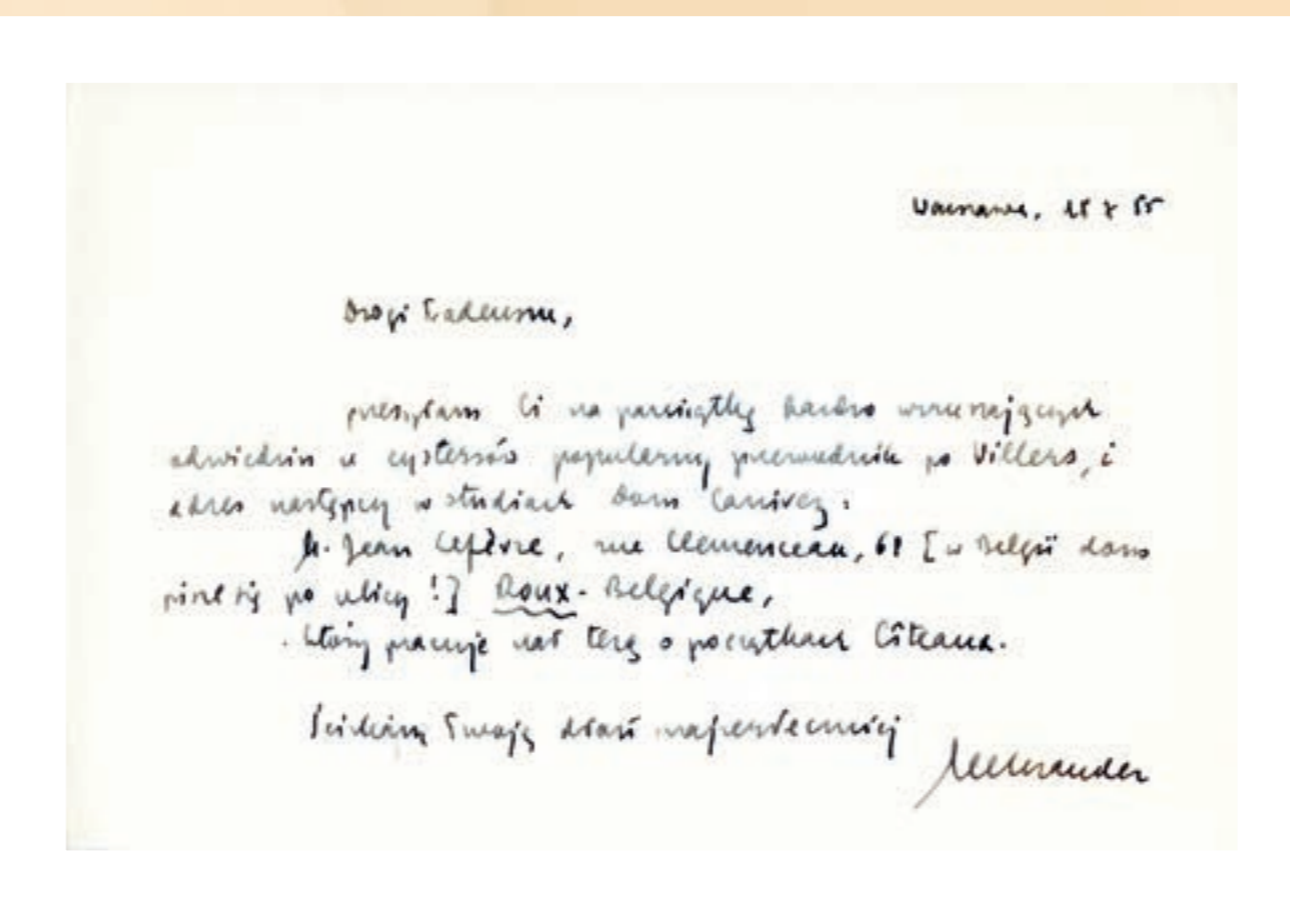 Warszawa, 18 X 55
Drogi Tadeuszu,
przesyłam Ci na pamiątkę bardzo wzruszających
odwiedzin u cystersów popularny przewodnik po Villers, i
adres następcy w studiach Dom Canivez:
M. Jean Lefèvre, rue Clemenceau, 68 [w Belgii dom
pisze się po ulicy!] Roux-Belgique,
który pracuje nad tezą o początkach Cîteaux.
Ściskam Twoją dłoń najserdeczniej
Aleksander